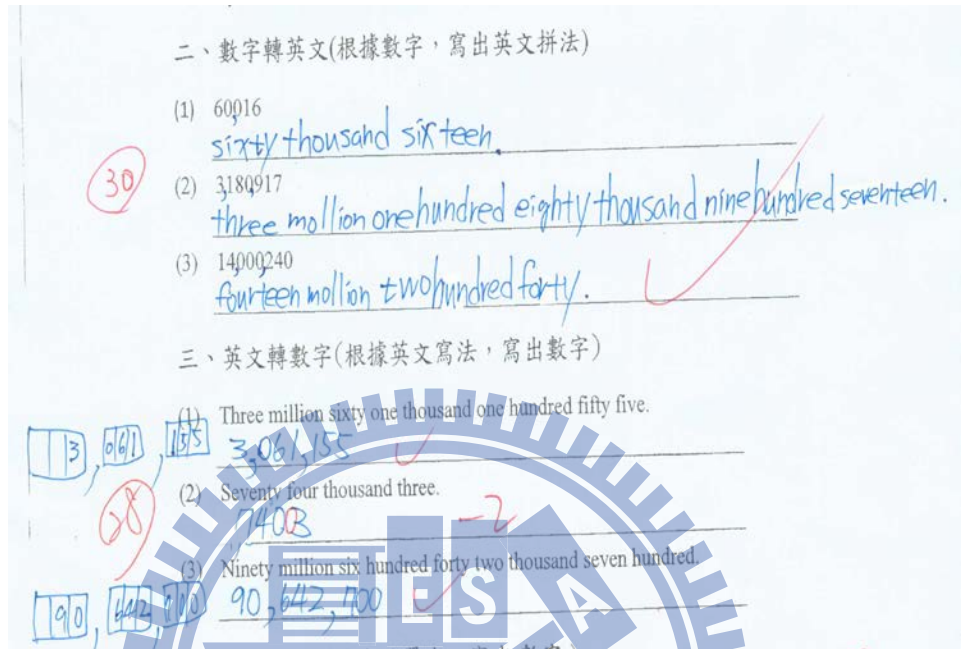 二、數字轉英文(根據數字，寫出英文拼法)
(1) 60,016
sixty thousand sixteen.
30
(2) 3,180,917
three mollion one hundred eighty thousand nine hundred seventeen.
(3) 14,000,240
fourteen mollion two hundred forty.
三、英文轉數字(根據英文寫法，寫出數字)
(1) Three million sixty one thousand one hundred fifty five.
3, 061, 155 3,061,155
(2) Seventy four thousand three.
28 74003 -2
(3) Ninety million six hundred forty two thousand seven hundred.
90, 642, 700 90,642,700
ESA